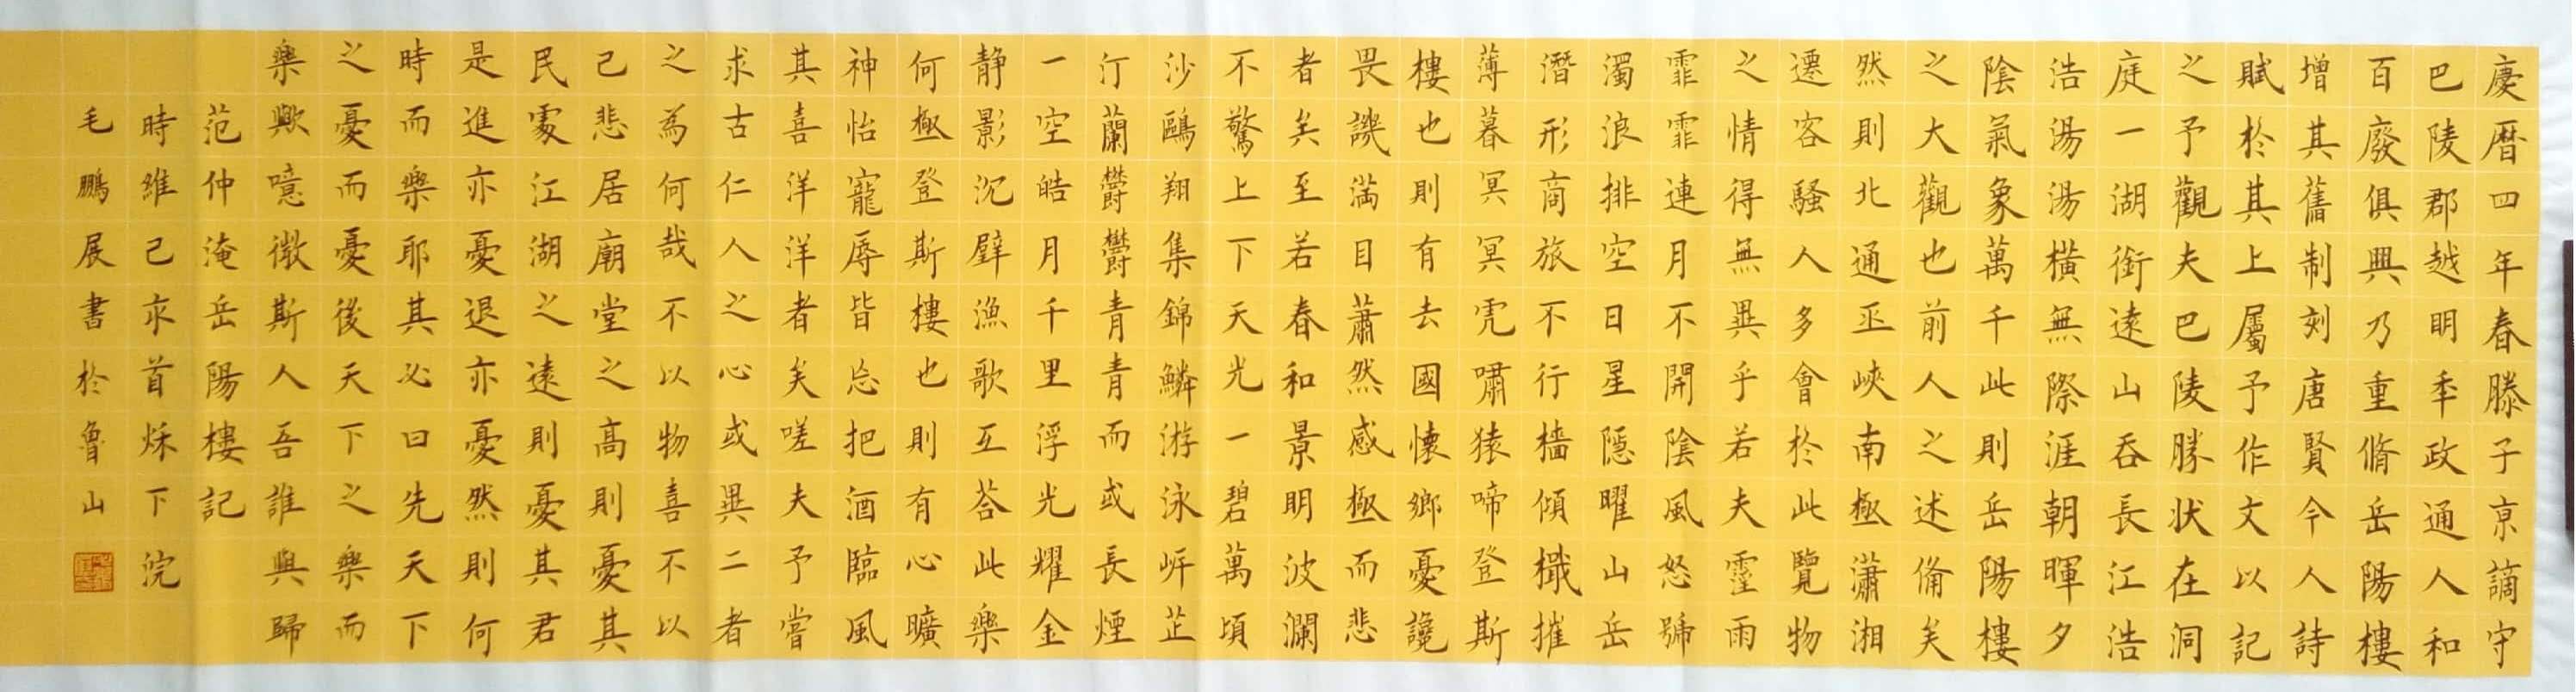 慶暦四年春滕子京謫守
巴陵郡越明秊政通人和
百廢俱興乃重脩岳陽樓
增其舊制刻唐賢今人詩
賦於其上屬予作文以記
之予觀夫巴陵勝状在洞
庭一湖銜遠山吞長江浩
浩湯湯橫無際涯朝暉夕
陰氣象萬千此則岳陽樓
之大觀也前人之述俻矣
然則北通巫峽南極瀟湘
遷客騷人多會於此覽物
之情得無異乎若夫霪雨
霏霏連月不開陰風怒號
濁浪排空日星隱曜山岳
潛形商旅不行檣傾檝摧
薄暮冥冥虎嘯猿啼登斯
樓也則有去國懷鄉憂讒
畏譏滿目蕭然感極而悲
者矣至若春和景明波瀾
不驚上下天光一碧萬頃
沙鷗翔集錦鱗游泳岸芷
汀蘭鬱鬱青青而或長煙
一空皓月千里浮光耀金
静影沉璧漁歌互荅此樂
何極登斯樓也則有心曠
神怡寵辱皆忘把酒臨風
其喜洋洋者矣嗟夫予嘗
求古仁人之心或異二者
之為何哉不以物喜不以
己悲居廟堂之高則憂其
民處江湖之遠則憂其君
是進亦憂退亦憂然則何
時而樂耶其必曰先天下
之憂而憂後天下之樂而
樂歟噫微斯人吾誰與歸
范仲淹岳陽樓記
時維己亥首秌下浣
毛鵬展書於魯山